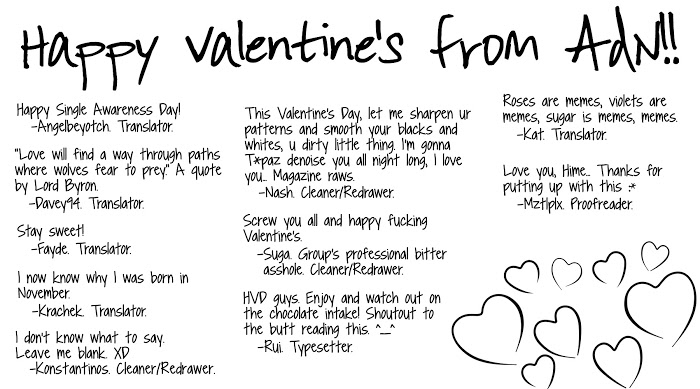 Happy Valentine's from AdN!!
Happy Single Awareness Day!
-Angelbeyotch. Translator.
"Love will find a way through paths
where wolves fear to prey." A quote
by Lord Byron.
-Davey94. Translator.
Stay sweet!
-Fayde. Translator.
I now know why I was born in
November.
-Krachek. Translator.
I don't know what to say.
Leave me blank. XD
-Konstantinos. Cleaner/Redrawer.
This Valentine's Day, let me sharpen ur
patterns and smooth your blacks and
whites, u dirty little thing. I'm gonna
T*paz denoise you all night long, I love
you... Magazine raws.
-Nash. Cleaner/Redrawer.
Screw you all and happy fucking
Valentine's.
-Suga. Group's professional bitter
asshole. Cleaner/Redrawer.
HVD guys. Enjoy and watch out on
the chocolate intake! Shoutout to
the butt reading this. ^__^
-Rui. Typesetter.
Roses are memes, violets are
memes, sugar is memes, memes.
-Kat. Translator.
Love you, Hime... Thanks for
putting up with this :*
-Mztlplx. Proofreader.